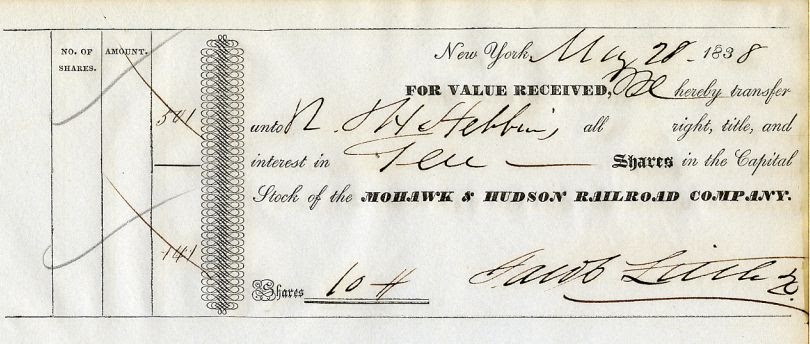 NO. OF SHARES. AMOUNT.
New York, May 28 - 1838
FOR VALUE RECEIVED, hereby transfer
541
unto N. all right, title, and
interest in Ten — Shares in the Capital
Stock of the MOHAWK & HUDSON RAILROAD COMPANY.
141
Shares 10
Jacob Little